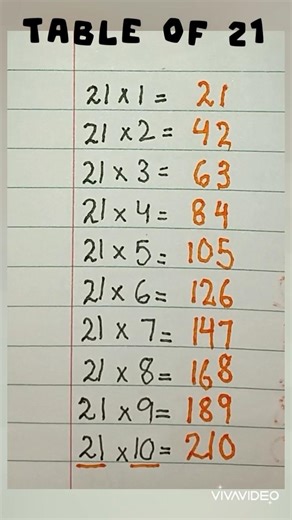 TABLE OF 21
21 x 1 = 21
21 x 2 = 42
21 x 3 = 63
21 x 4 = 84
21 x 5 = 105
21 x 6 = 126
21 x 7 = 147
21 x 8 = 168
21 x 9 = 189
21 x 10 = 210
VIVAVIDEO